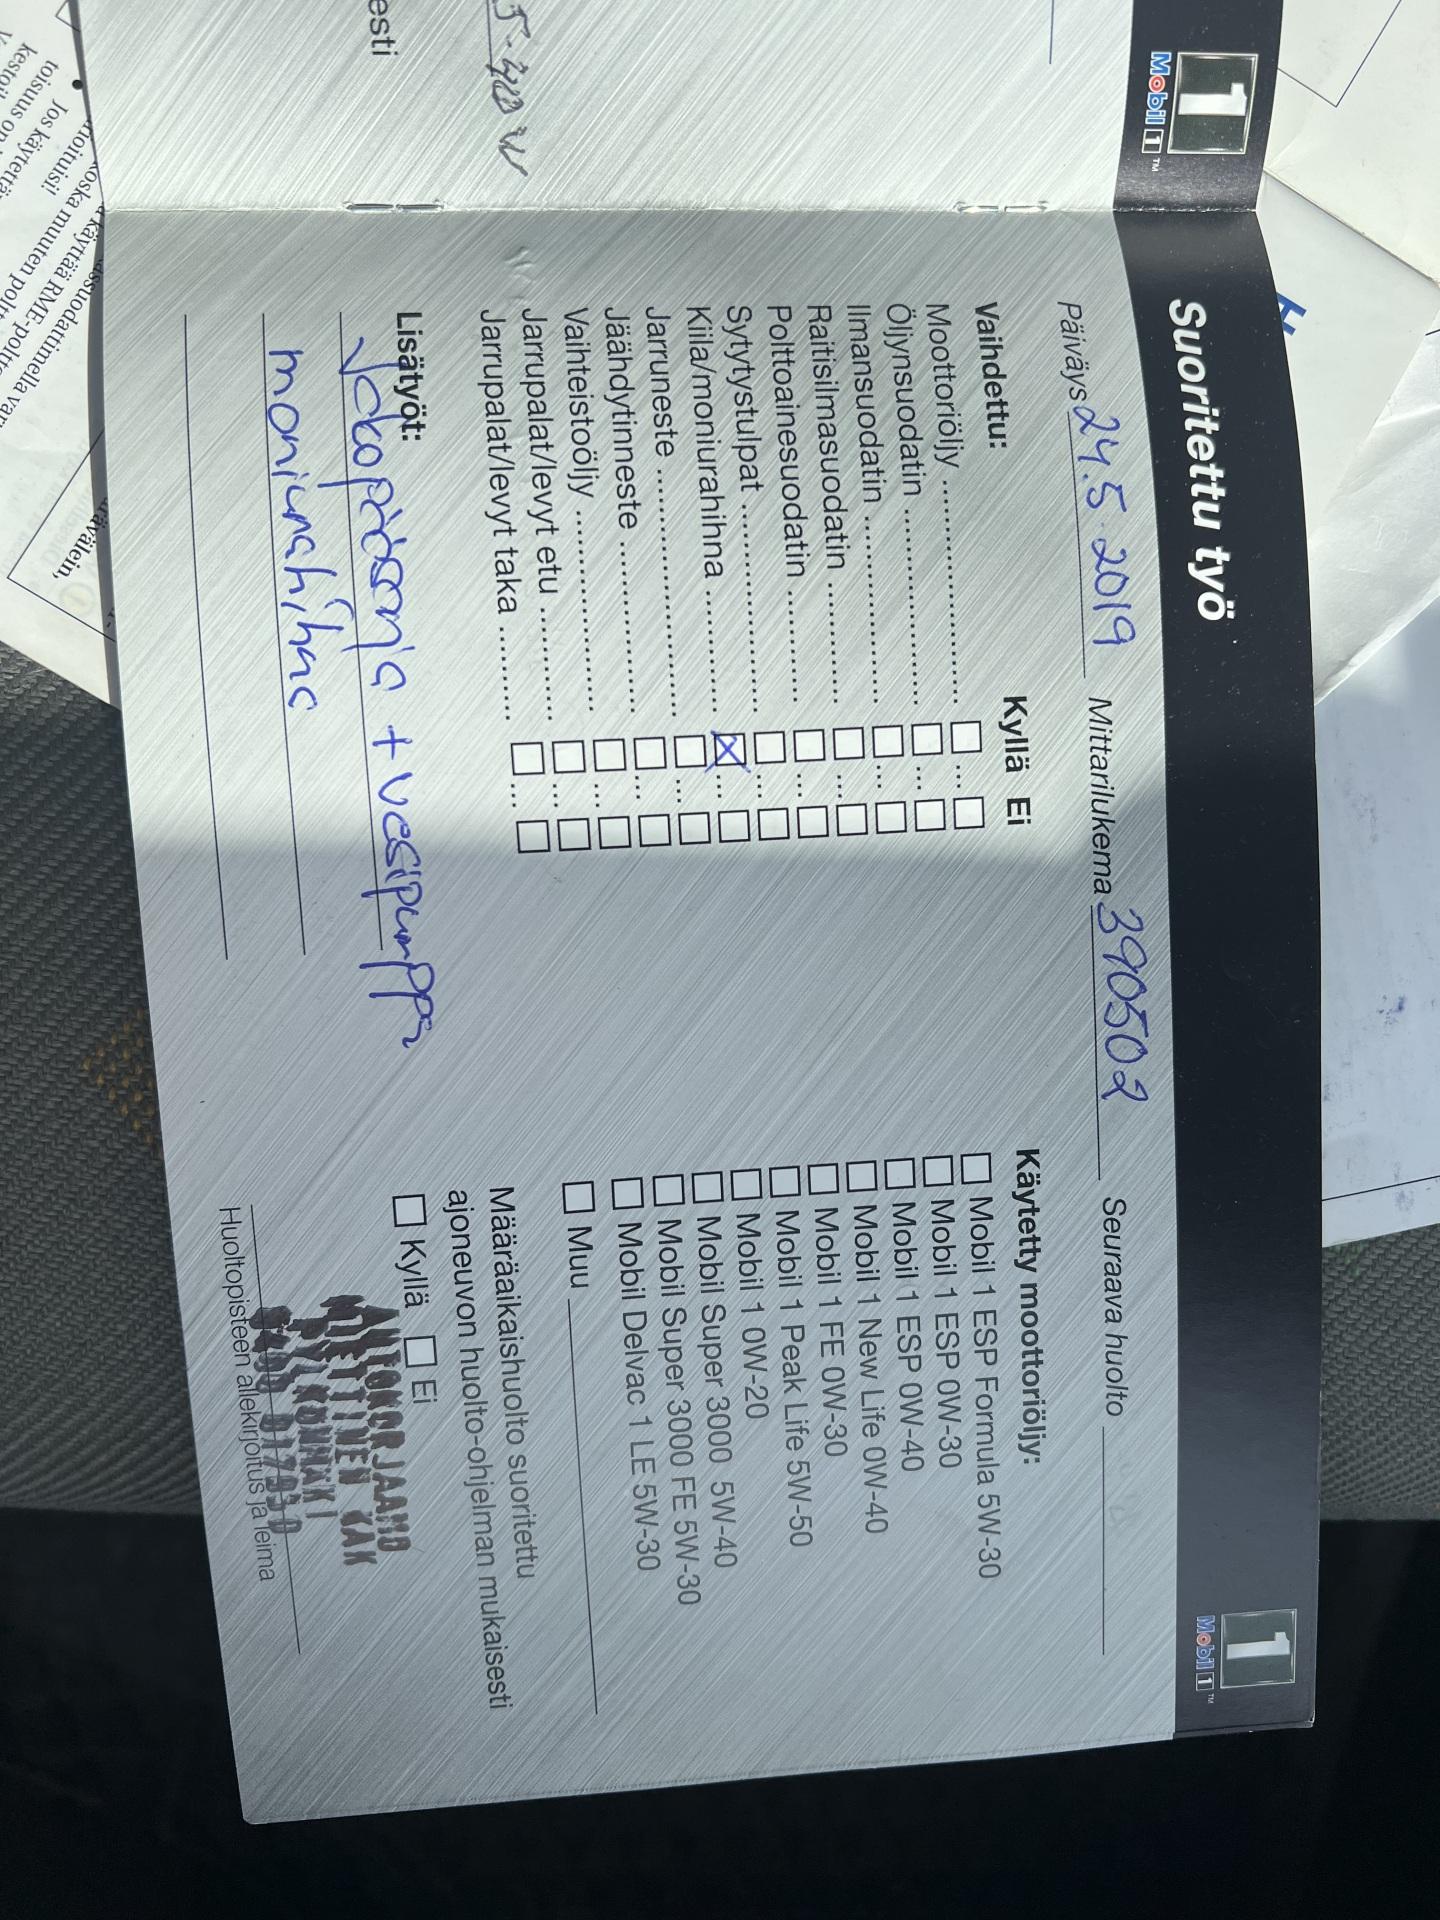 5-40 W
esti
1
Mobil 1™
Suoritettu työ
1
Mobil 1™
Päiväys 24.5.2019 Mittarilukema 390502 Seuraava huolto
Vaihdettu: Kyllä Ei
Moottoriöljy
Öljynsuodatin
Ilmansuodatin
Raitisilmasuodatin
Polttoainesuodatin
Sytytystulpat
Kiila/moniurahihna
Jarruneste
Jäähdytinneste
Vaihteistoöljy
Jarrupalat/levyt etu
Jarrupalat/levyt taka
Lisätyöt:
Jakopääsarja + vesipumppu
moniurahihna
Käytetty moottoriöljy:
Mobil 1 ESP Formula 5W-30
Mobil 1 ESP 0W-30
Mobil 1 ESP 0W-40
Mobil 1 New Life 0W-40
Mobil 1 FE 0W-30
Mobil 1 Peak Life 5W-50
Mobil 1 0W-20
Mobil Super 3000 5W-40
Mobil Super 3000 FE 5W-30
Mobil Delvac 1 LE 5W-30
Muu
Määräaikaishuolto suoritettu
ajoneuvon huolto-ohjelman mukaisesti
Kyllä Ei
AUTOKORJAAMO
Huoltopisteen allekirjoitus ja leima
toisuus
Jos käytettä
rioituisi!
koska muuten
käyttää RME-polt
ssuodattimella